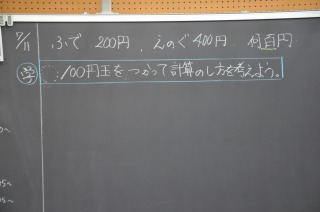 7/11 ふで 200円、えのぐ 400円 何百円
学 100円玉をつかって計算のし方を考えよう。